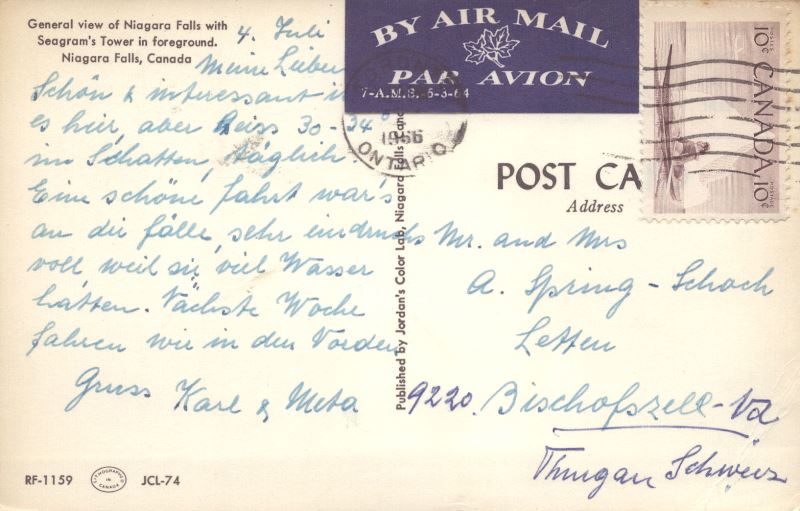 General view of Niagara Falls with
Seagram's Tower in foreground.
Niagara Falls, Canada
4. Juli
Meine Lieben
Schön & interessant i
es heir, aber heiss 30-34°
im Schatten, täglich.
Eine schöne fahrt war's
an die fälle, sehr eindrucks
voll weil sie viel Wasser
hatten. Nächste Woche
fahren wir in den Norden
Gruss Karl & Meta
RF-1159
LITHOGRAPHED
IN
CANADA
JCL-74
Published by Jordan's Color Lab, Niagara Falls, Cana
BY AIR MAIL
PAR AVION
7-A.M.S.-5-3-64
1966
ONTARIO
10¢ POSTES CANADA POSTAGE 10¢
POST CA
Address
Mr. and Mrs
A. Spring-Schoch
Letten
9220 Bischofszell-
Thurgau Schweiz